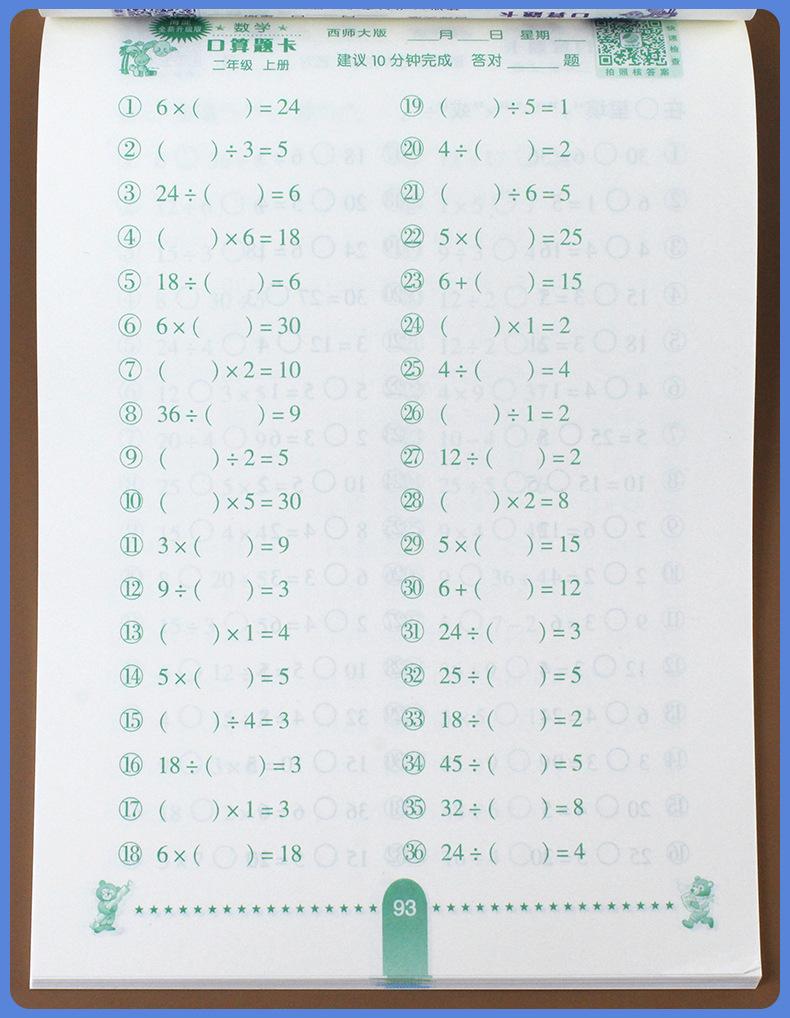 全新升级版
数学
口算题卡
二年级 上册
西师大版 ____月____日 星期____
建议10分钟完成 答对______题
快速检查
拍照核答案
① 6×( )=24
② ( )÷3=5
③ 24÷( )=6
④ ( )×6=18
⑤ 18÷( )=6
⑥ 6×( )=30
⑦ ( )×2=10
⑧ 36÷( )=9
⑨ ( )÷2=5
⑩ ( )×5=30
⑪ 3×( )=9
⑫ 9÷( )=3
⑬ ( )×1=4
⑭ 5×( )=5
⑮ ( )÷4=3
⑯ 18÷( )=3
⑰ ( )×1=3
⑱ 6×( )=18
⑲ ( )÷5=1
⑳ 4÷( )=2
㉑ ( )÷6=5
㉒ 5×( )=25
㉓ 6+( )=15
㉔ ( )×1=2
㉕ 4÷( )=4
㉖ ( )÷1=2
㉗ 12÷( )=2
㉘ ( )×2=8
㉙ 5×( )=15
㉚ 6+( )=12
㉛ 24÷( )=3
㉜ 25÷( )=5
㉝ 18÷( )=2
㉞ 45÷( )=5
㉟ 32÷( )=8
㊱ 24÷( )=4
93